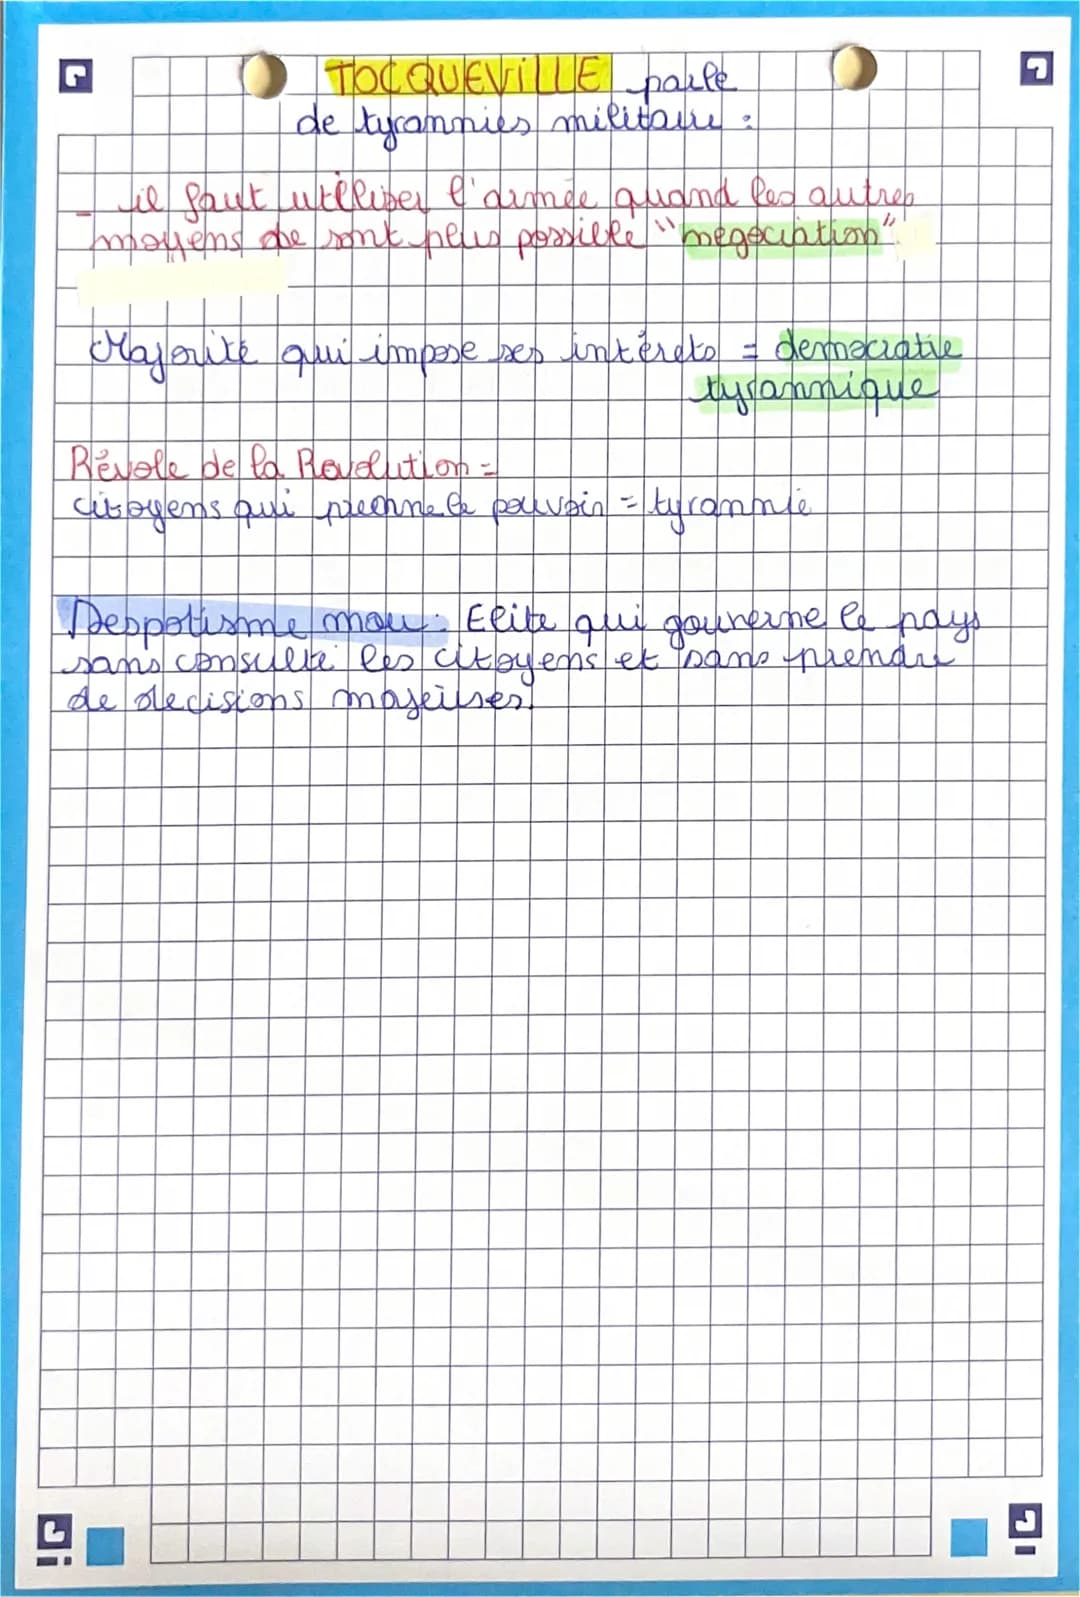 TOCQUEVILLE parle
de tyrannies militaire :
- il faut utiliser l'armée quand les autres
moyens de sont plus possible "négociation"
Majorité qui impose ses intérêts = democratie
tyrannique
Révole de la Revolution =
citoyens qui prenne le pouvoir = tyrannie
Despotisme mou : Elite qui gouverne le pays
sans consulte les citoyens et sans prendre
de decisions majeures.